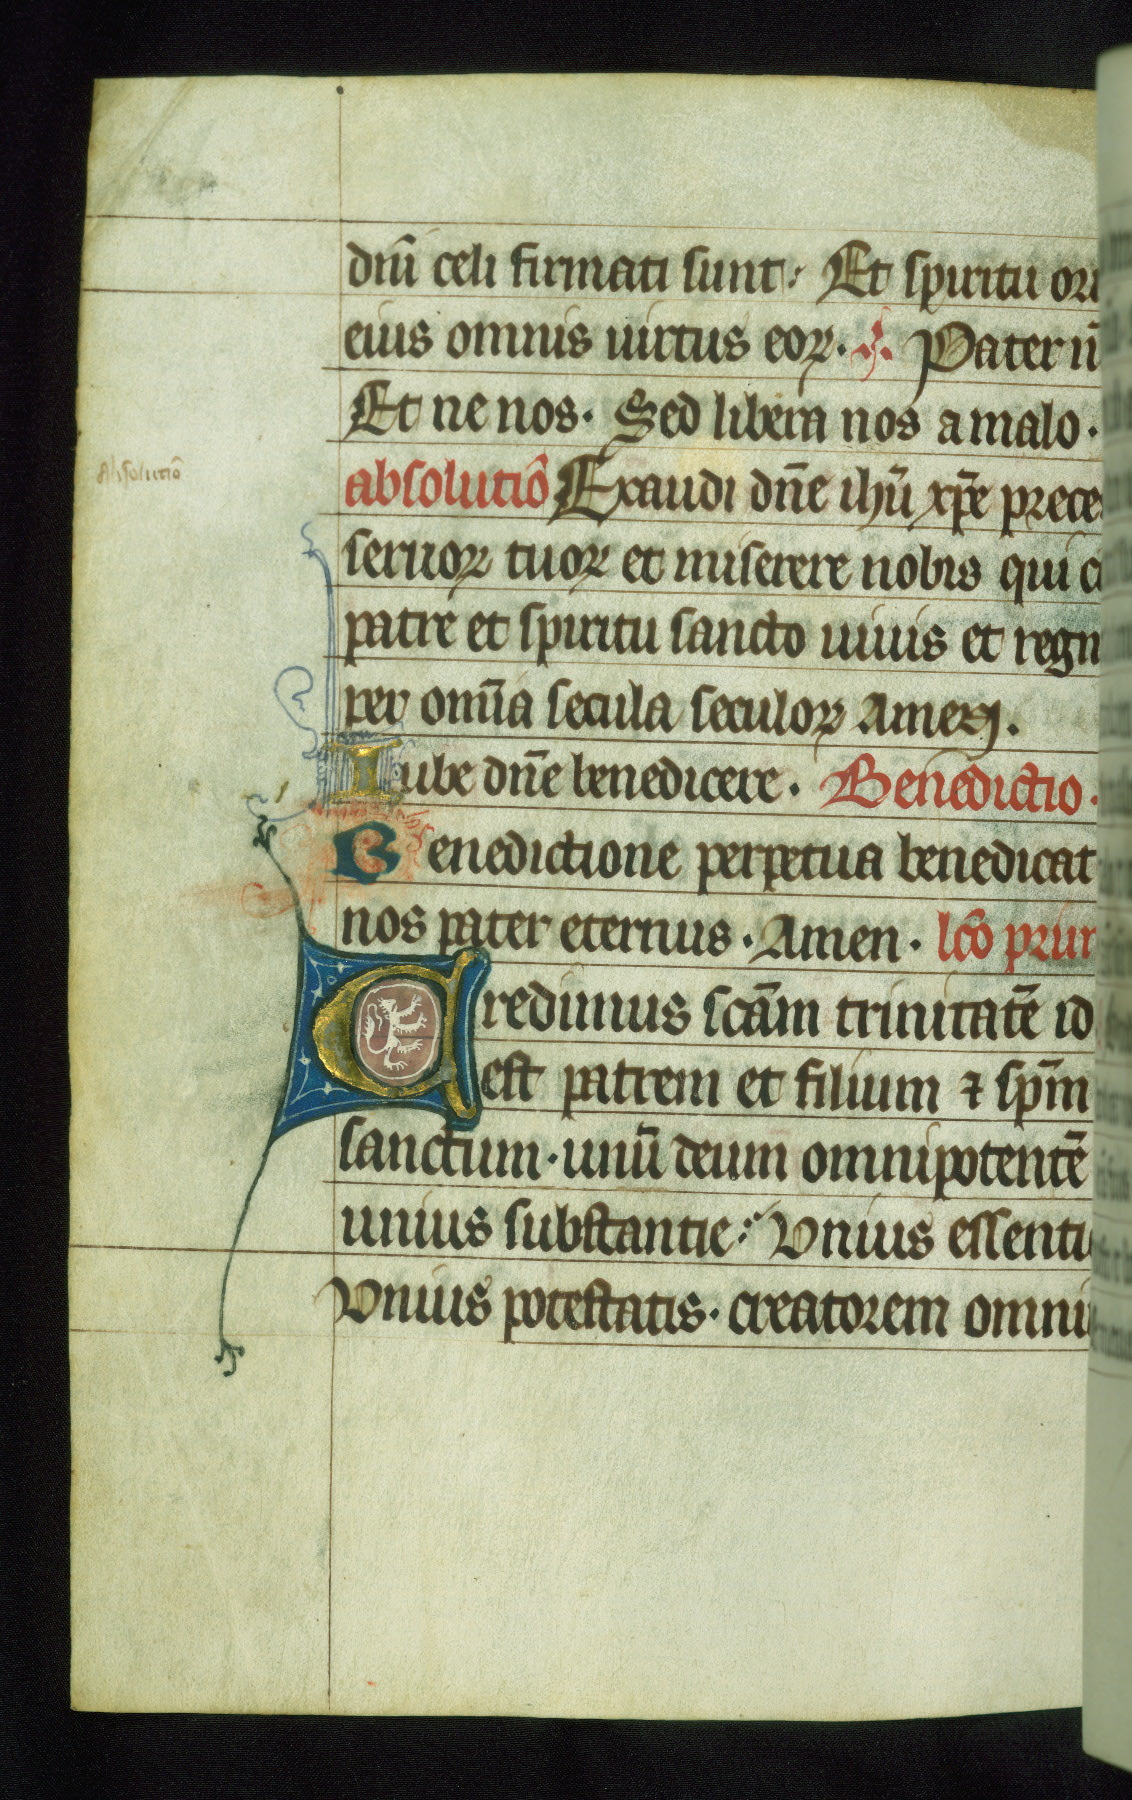 dnı̄ celi firmati sunt: Et spiritu ori
eius omnis uirtus eoꝝ. ℣. Pater n̄
Et ne nos. Sed libera nos a malo.
Absolutiō
absolutiō Exaudi dn̄e ihū xp̄e prece
seruoꝝ tuoꝝ et miserere nobis qui c
patre et spiritu sancto uiuis et regn
per omīa secula seculoꝝ Amen.
Iube dn̄e benedicere. Benedictio.
Benedictione perpetua benedicat
nos pater eternus. Amen. lc̄o prim
Credimus scām trinitatē id
est patrem et filium ⁊ sp̄m
sanctum. unū deum omnipotentē
unius substantie: Vnius essenti
Vnius potestatis. creatorem omni